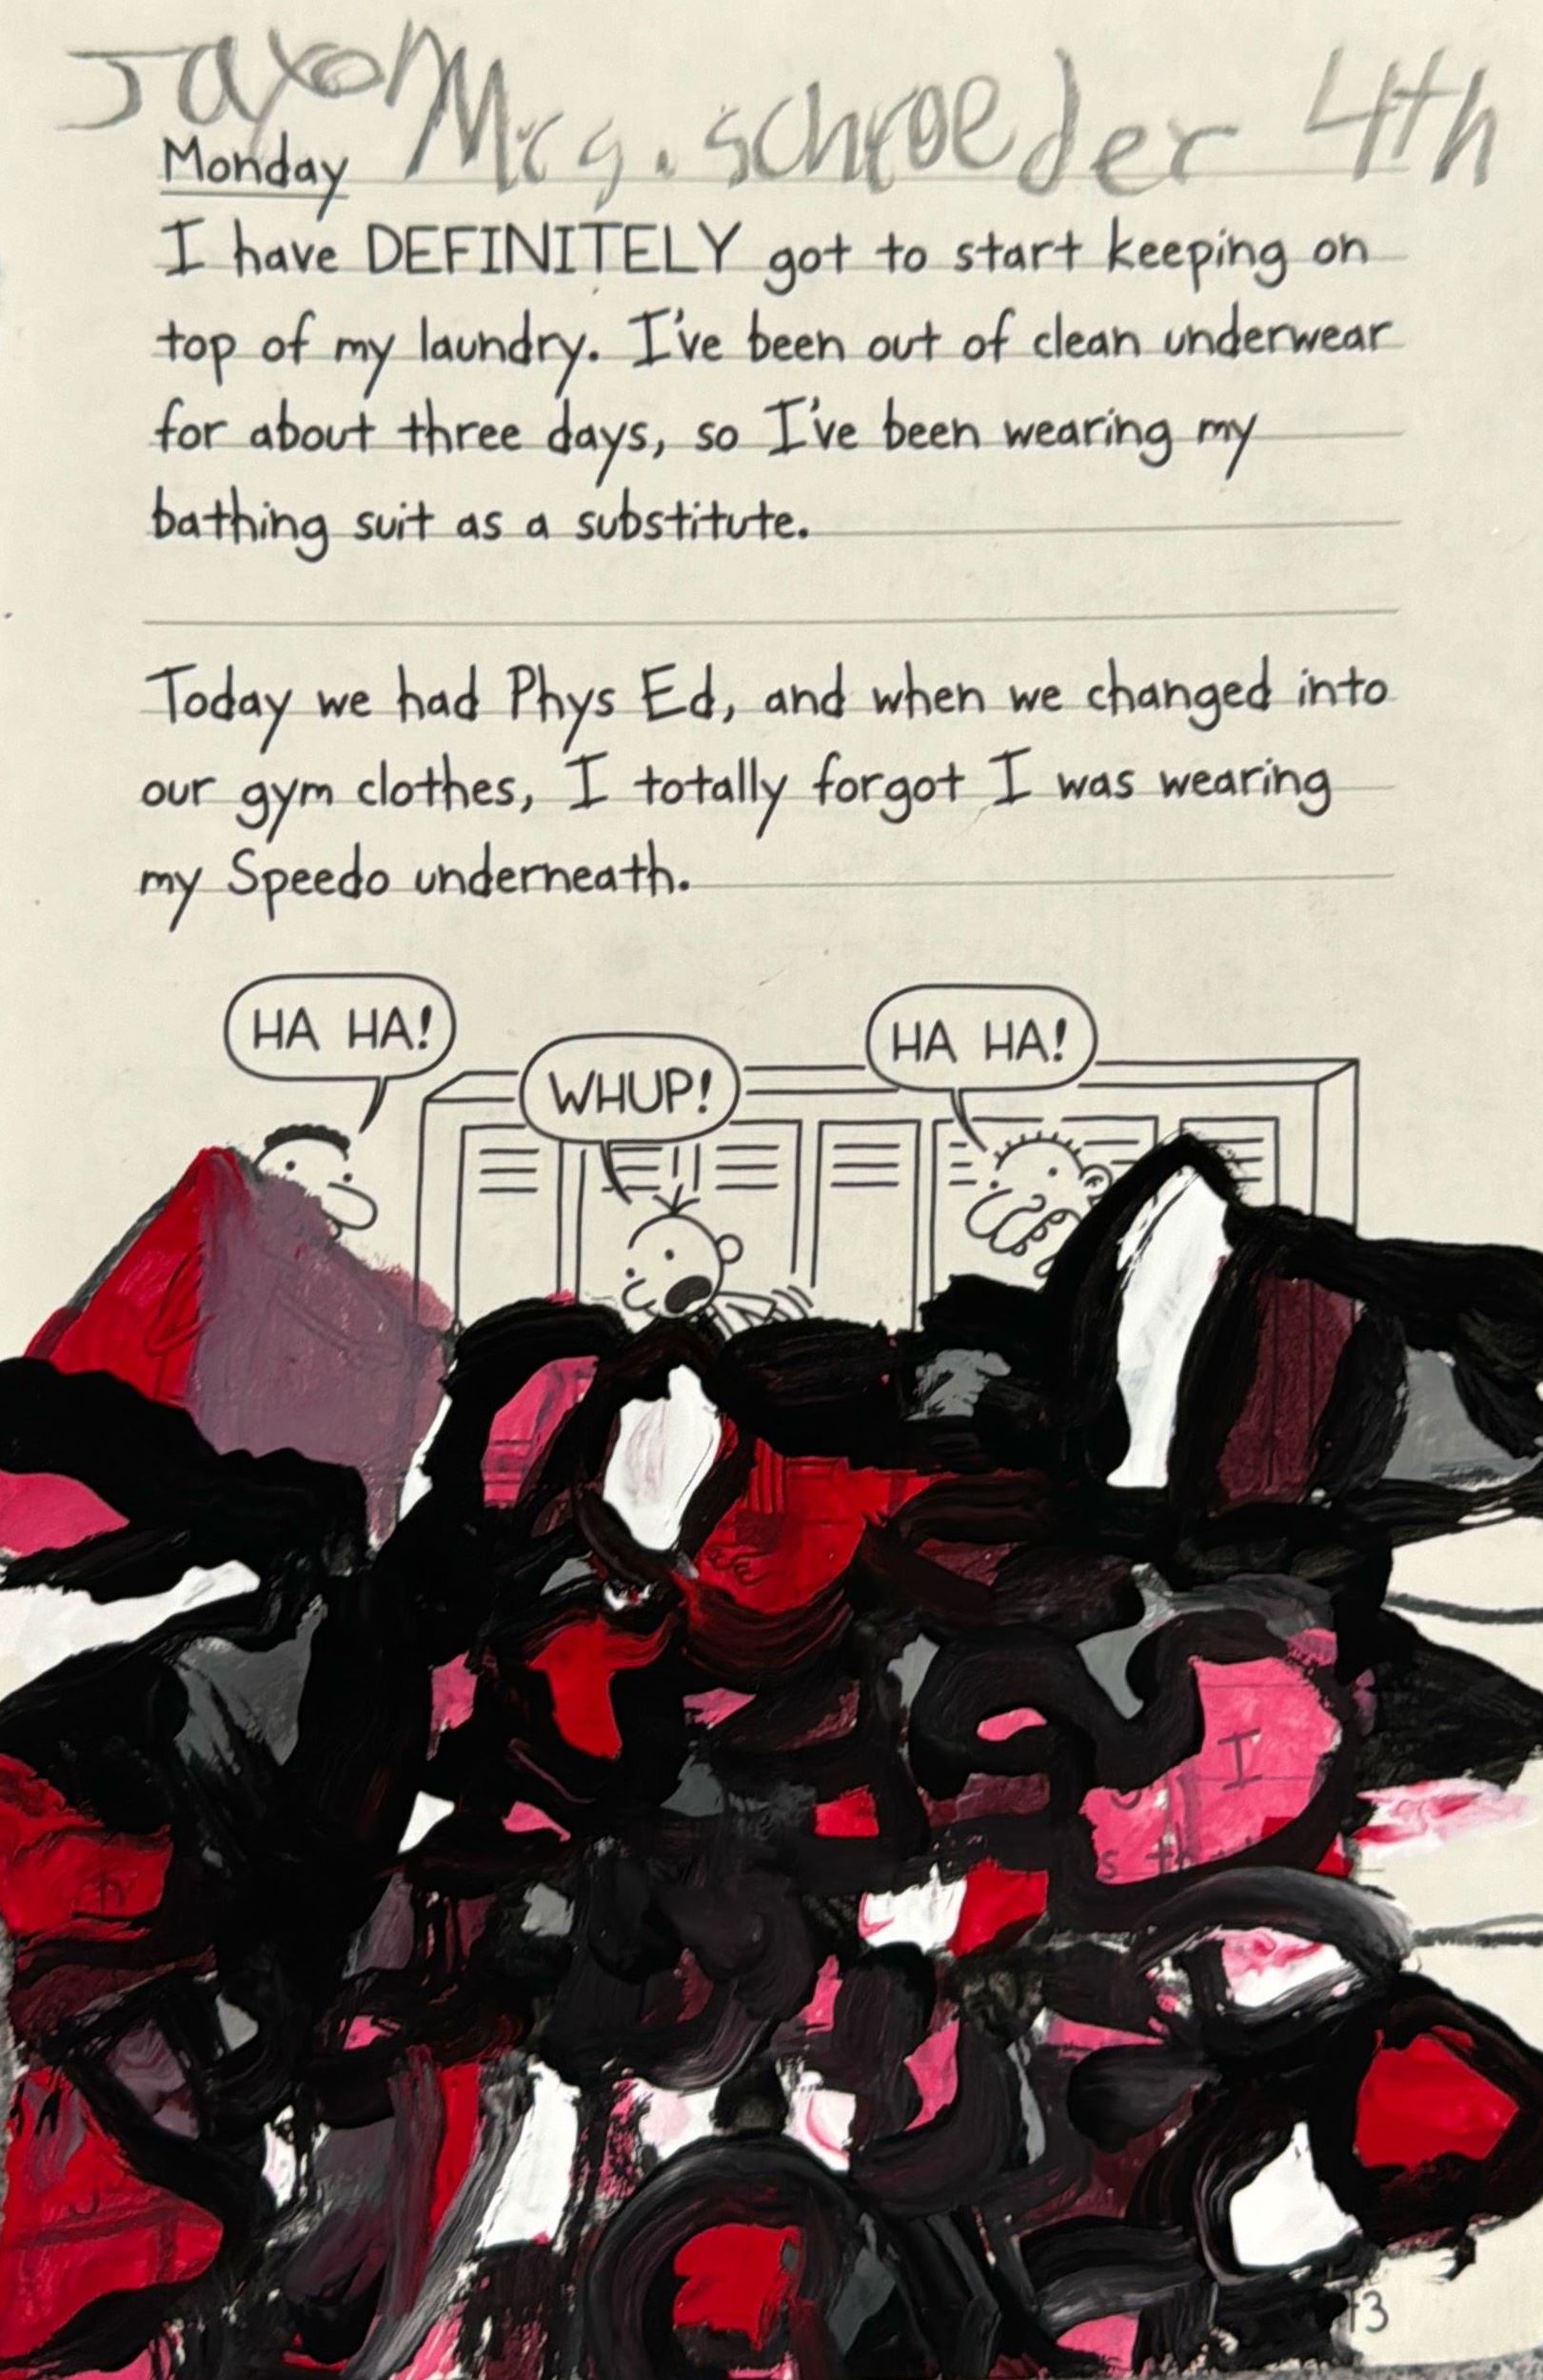 Jaxon Mrs. schroeder 4th
Monday
I have DEFINITELY got to start keeping on
top of my laundry. I've been out of clean underwear
for about three days, so I've been wearing my
bathing suit as a substitute.
Today we had Phys Ed, and when we changed into
our gym clothes, I totally forgot I was wearing
my Speedo underneath.
HA HA!
WHUP!
HA HA!
I
13